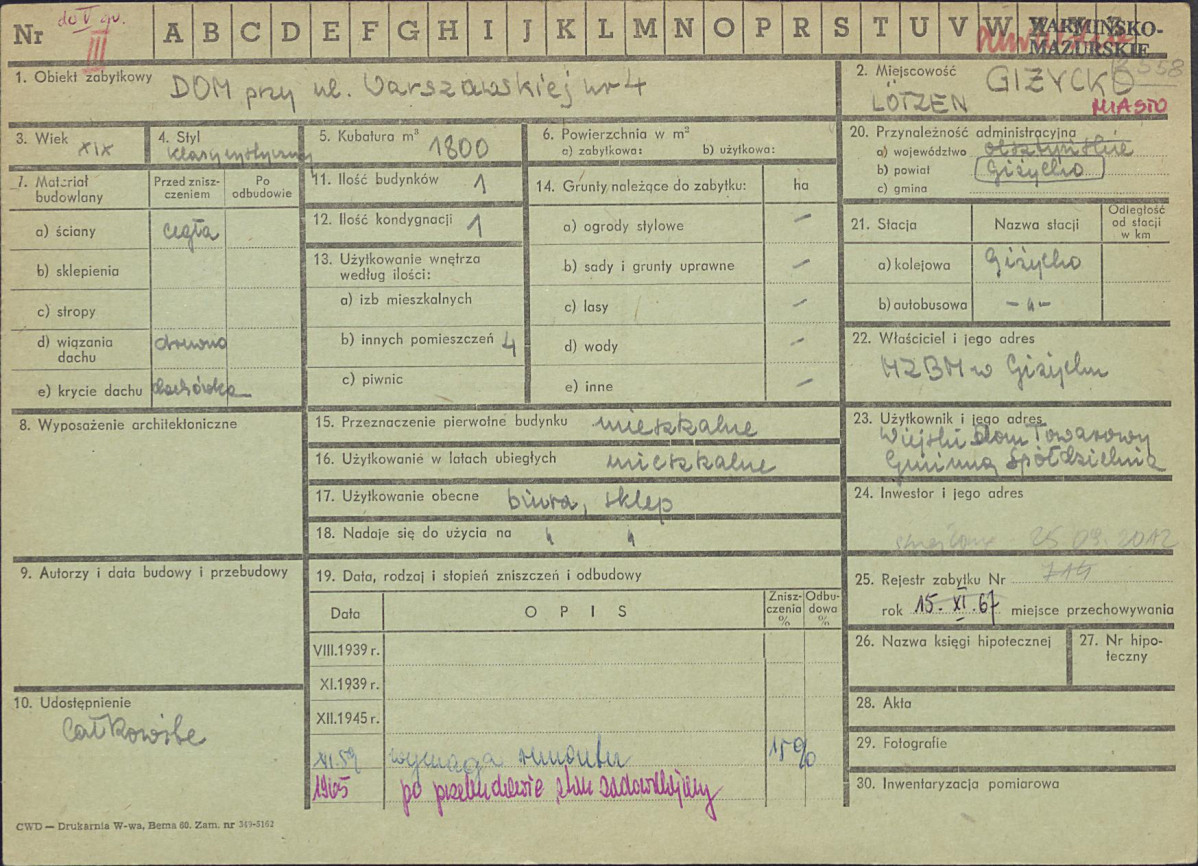 Nr do V gr. III A B C D E F G H I J K L M N O P R S T U V W Z WARMIŃSKO-MAZURSKIE
1. Obiekt zabytkowy DOM przy ul. Warszawskiej nr 4
2. Miejscowość GIŻYCKO
LÖTZEN MIASTO
3. Wiek XIX
4. Styl klasycystyczny
5. Kubatura m³ 1800
6. Powierzchnia w m²
a) zabytkowa: b) użytkowa:
20. Przynależność administracyjna
a) województwo olsztyńskie
b) powiat Giżycko
c) gmina
7. Materiał budowlany
Przed zniszczeniem
Po odbudowie
a) ściany cegła
b) sklepienia
c) stropy
d) wiązania dachu drewno
e) krycie dachu dachówka
11. Ilość budynków 1
12. Ilość kondygnacji 1
13. Użytkowanie wnętrza według ilości:
a) izb mieszkalnych
b) innych pomieszczeń 4
c) piwnic
14. Grunty należące do zabytku: ha
a) ogrody stylowe –
b) sady i grunty uprawne –
c) lasy –
d) wody –
e) inne –
21. Stacja
Nazwa stacji
Odległość od stacji w km
a) kolejowa Giżycko
b) autobusowa –"–
22. Właściciel i jego adres
MZBM w Giżycku
8. Wyposażenie architektoniczne
15. Przeznaczenie pierwotne budynku mieszkalne
16. Użytkowanie w latach ubiegłych mieszkalne
17. Użytkowanie obecne biura, sklep
18. Nadaje się do użycia na " "
23. Użytkownik i jego adres
Wiejski Dom Towarowy
Gminna Spółdzielnia
24. Inwestor i jego adres
25.09.2012
9. Autorzy i data budowy i przebudowy
19. Data, rodzaj i stopień zniszczeń i odbudowy
Data OPIS Zniszczenia % Odbudowa %
VIII.1939 r.
XI.1939 r.
XII.1945 r.
XI.59 wymaga remontu 15%
1965 po przebudowie, stan zadowalający
25. Rejestr zabytku Nr 714
rok 15. XI. 67 miejsce przechowywania
26. Nazwa księgi hipotecznej
27. Nr hipoteczny
10. Udostępnienie
całkowite
28. Akta
29. Fotografie
30. Inwentaryzacja pomiarowa
CWD — Drukarnia W-wa, Bema 60. Zam. nr 349-5162